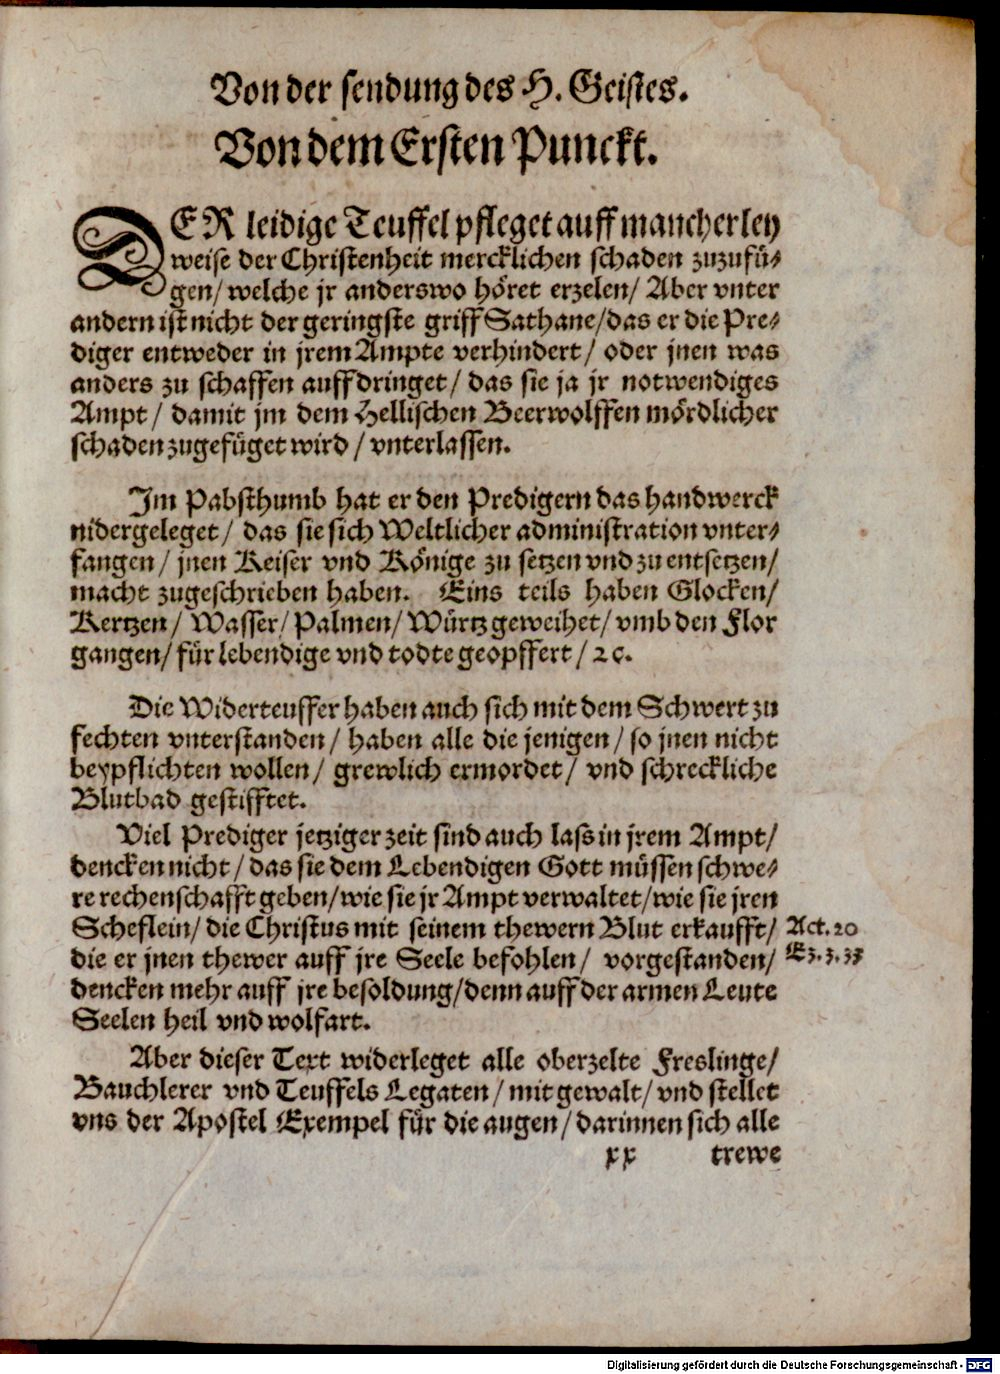 Von der sendung des H. Geistes.
Von dem Ersten Punckt.
DER leidige Teuffel pfleget auff mancherley
weise der Christenheit mercklichen schaden zuzufü-
gen/ welche jr anderswo höret erzelen/ Aber vnter
andern ist nicht der geringste griff Sathane/ das er die Pre-
diger entweder in jrem Ampte verhindert/ oder jnen was
anders zu schaffen auffdringet/ das sie ja jr notwendiges
Ampt/ damit jm dem Hellischen Beerwolffen mördlicher
schaden zugefüget wird/ vnterlassen.
Im Pabsthumb hat er den Predigern das handwerck
nidergeleget/ das sie sich Weltlicher administration vnter-
fangen/ jnen Keiser vnd Könige zu setzen vnd zu entsetzen/
macht zugeschrieben haben. Eins teils haben Glocken/
Kertzen/ Wasser/ Palmen/ Würtz geweihet/ vmb den Flor
gangen/ für lebendige vnd todte geopffert/ 2c.
Die Widerteuffer haben auch sich mit dem Schwert zu
fechten vnterstanden/ haben alle die jenigen/ so jnen nicht
beypflichten wollen/ grewlich ermordet/ vnd schreckliche
Blutbad gestifftet.
Viel Prediger jetziger zeit sind auch lass in jrem Ampt/
dencken nicht/ das sie dem Lebendigen Gott müssen schwe-
re rechenschafft geben/ wie sie jr Ampt verwaltet/ wie sie jren
Scheflein/ die Christus mit seinem thewern Blut erkaufft/ Act. 20
die er jnen thewer auff jre Seele befohlen/ vorgestanden/ Ez. 3. 33
dencken mehr auff jre besoldung/ denn auff der armen Leute
Seelen heil vnd wolfart.
Aber dieser Text widerleget alle oberzelte Freslinge/
Bauchlerer vnd Teuffels Legaten/ mit gewalt/ vnd stellet
vns der Apostel Exempel für die augen/ darinnen sich alle
xx trewe
Digitalisierung gefördert durch die Deutsche Forschungsgemeinschaft - DFG